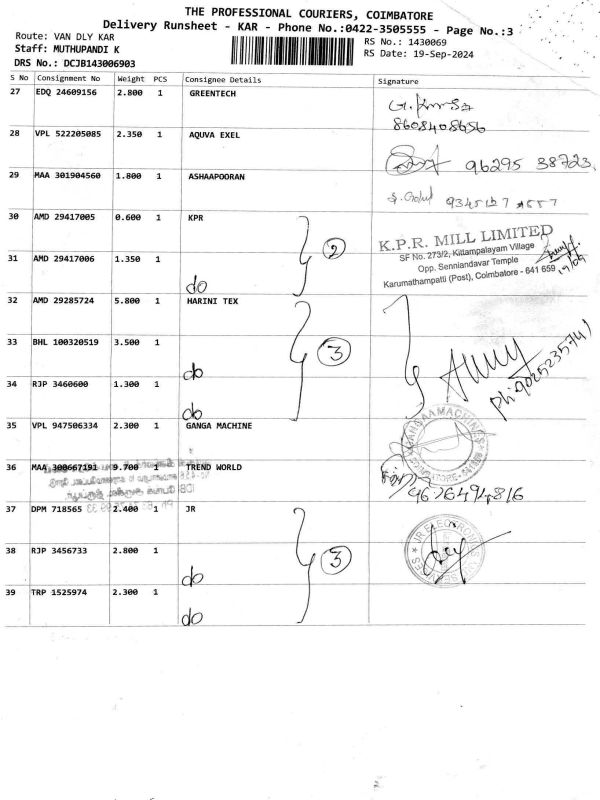 THE PROFESSIONAL COURIERS, COIMBATORE
Delivery Runsheet - KAR - Phone No.:0422-3505555 - Page No.:3
Route: VAN DLY KAR
Staff: MUTHUPANDI K
DRS No.: DCJB143006903
RS No.: 1430069
RS Date: 19-Sep-2024
S No Consignment No Weight PCS Consignee Details Signature
27 EDQ 24609156 2.800 1 GREENTECH
8608408656
28 VPL 522205085 2.350 1 AQUVA EXEL
96295 38723
29 MAA 301904560 1.800 1 ASHAAPOORAN
30 AMD 29417005 0.600 1 KPR
2
K.P.R. MILL LIMITED
SF No. 273/2, Kittampalayam Village
Opp. Senniandavar Temple
Karumathampatti (Post), Coimbatore - 641 659
19/09
31 AMD 29417006 1.350 1
do
32 AMD 29285724 5.800 1 HARINI TEX
33 BHL 100320519 3.500 1
do
3
34 RJP 3460600 1.300 1
do
ph: 9025235741
35 VPL 947506334 2.300 1 GANGA MACHINE
36 MAA 300667191 9.700 1 TREND WORLD
9626494816
37 DPM 718565 2.400 1 JR
38 RJP 3456733 2.800 1
do
3
39 TRP 1525974 2.300 1
do